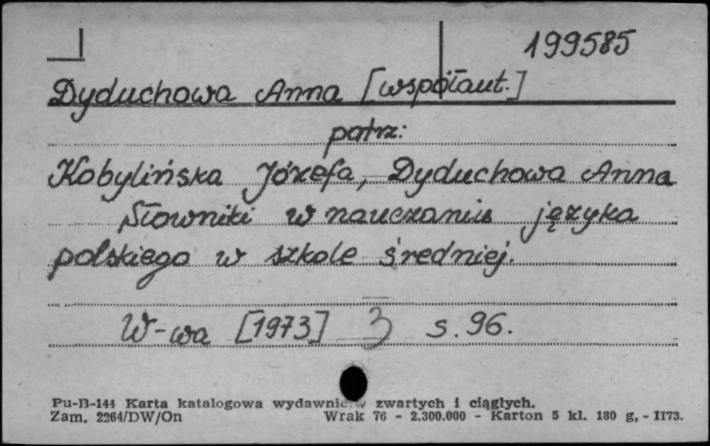 199585
Dyduchowa Anna [współaut.]
patrz:
Kobylińska Józefa, Dyduchowa Anna
Słowniki w nauczaniu języka
polskiego w szkole średniej.
W-wa [1973] 3 s. 96.
Pu-B-144 Karta katalogowa wydawnictw zwartych i ciągłych.
Zam. 2264/DW/On Wrak 76 - 2.300.000 - Karton 5 kl. 180 g, - II73.